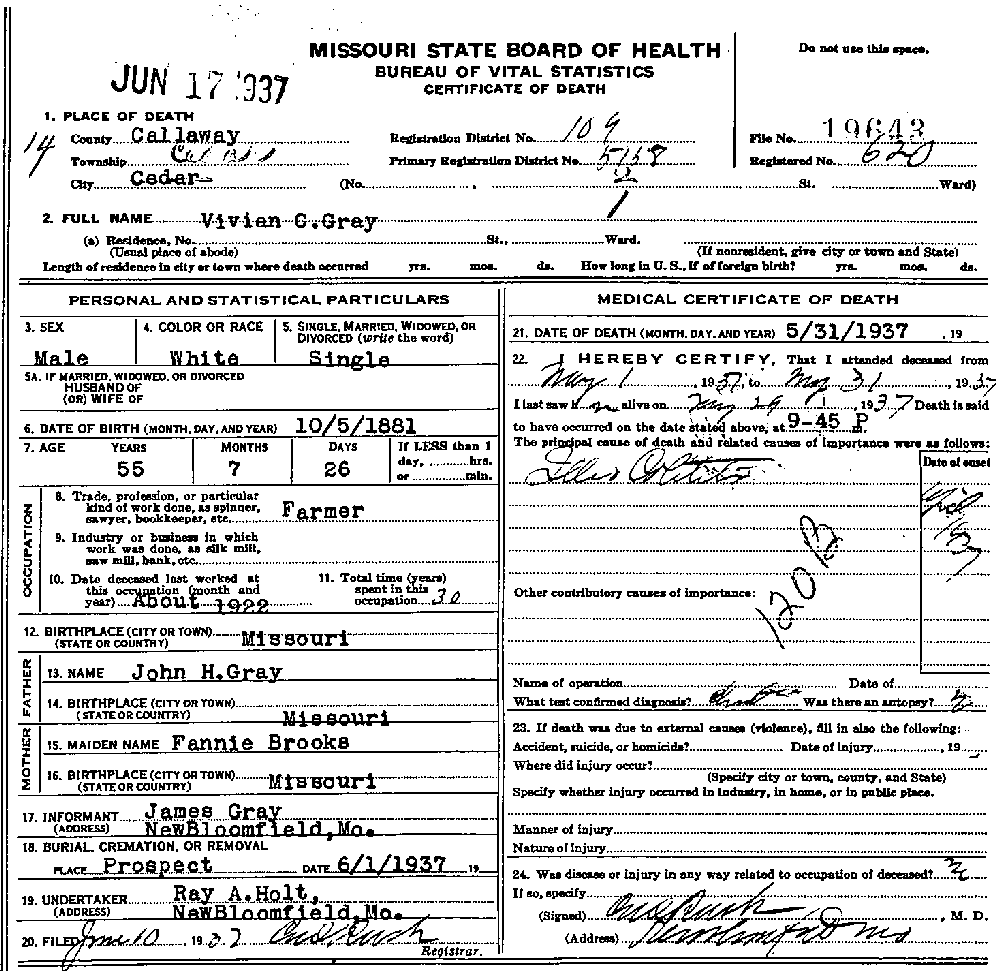 MISSOURI STATE BOARD OF HEALTH
BUREAU OF VITAL STATISTICS
CERTIFICATE OF DEATH
Do not use this space.
JUN 17 1937
14
1. PLACE OF DEATH
County Callaway Registration District No. 109 File No. 19643
Township Primary Registration District No. 5158 Registered No. 620
City Cedar (No. , St. Ward)
2. FULL NAME Vivian C.Gray
(a) Residence, No. St., Ward.
(Usual place of abode) (If nonresident, give city or town and State)
Length of residence in city or town where death occurred yrs. mos. ds. How long in U. S., if of foreign birth? yrs. mos. ds.
PERSONAL AND STATISTICAL PARTICULARS
3. SEX 4. COLOR OR RACE 5. SINGLE, MARRIED, WIDOWED, OR
DIVORCED (write the word)
Male White Single
5A. IF MARRIED, WIDOWED, OR DIVORCED
HUSBAND OF
(OR) WIFE OF
6. DATE OF BIRTH (MONTH, DAY, AND YEAR) 10/5/1881
7. AGE YEARS MONTHS DAYS If LESS than 1
day, hrs.
or min.
55 7 26
OCCUPATION
8. Trade, profession, or particular
kind of work done, as spinner,
sawyer, bookkeeper, etc. Farmer
9. Industry or business in which
work was done, as silk mill,
saw mill, bank, etc.
10. Date deceased last worked at
this occupation (month and
year) About 1922
11. Total time (years)
spent in this
occupation 30
12. BIRTHPLACE (CITY OR TOWN)
(STATE OR COUNTRY) Missouri
FATHER
13. NAME John H.Gray
14. BIRTHPLACE (CITY OR TOWN)
(STATE OR COUNTRY) Missouri
MOTHER
15. MAIDEN NAME Fannie Brooks
16. BIRTHPLACE (CITY OR TOWN)
(STATE OR COUNTRY) Missouri
17. INFORMANT James Gray
(ADDRESS) NewBloomfield,Mo.
18. BURIAL, CREMATION, OR REMOVAL
PLACE Prospect DATE 6/1/1937 19
19. UNDERTAKER Ray A.Holt,
(ADDRESS) NewBloomfield,Mo.
20. FILED June 10, 1937
Registrar.
MEDICAL CERTIFICATE OF DEATH
21. DATE OF DEATH (MONTH, DAY, AND YEAR) 5/31/1937 , 19
22. I HEREBY CERTIFY, That I attended deceased from
May 1, 1937, to May 31, 1937
I last saw him alive on May 29, 1937 Death is said
to have occurred on the date stated above, at 9-45 P
The principal cause of death and related causes of importance were as follows:
Date of onset
120B
Other contributory causes of importance:
Name of operation Date of
What test confirmed diagnosis? Was there an autopsy?
23. If death was due to external causes (violence), fill in also the following:
Accident, suicide, or homicide? Date of injury , 19
Where did injury occur?
(Specify city or town, county, and State)
Specify whether injury occurred in industry, in home, or in public place.
Manner of injury
Nature of injury
24. Was disease or injury in any way related to occupation of deceased?
If so, specify
(Signed) , M. D.
(Address)